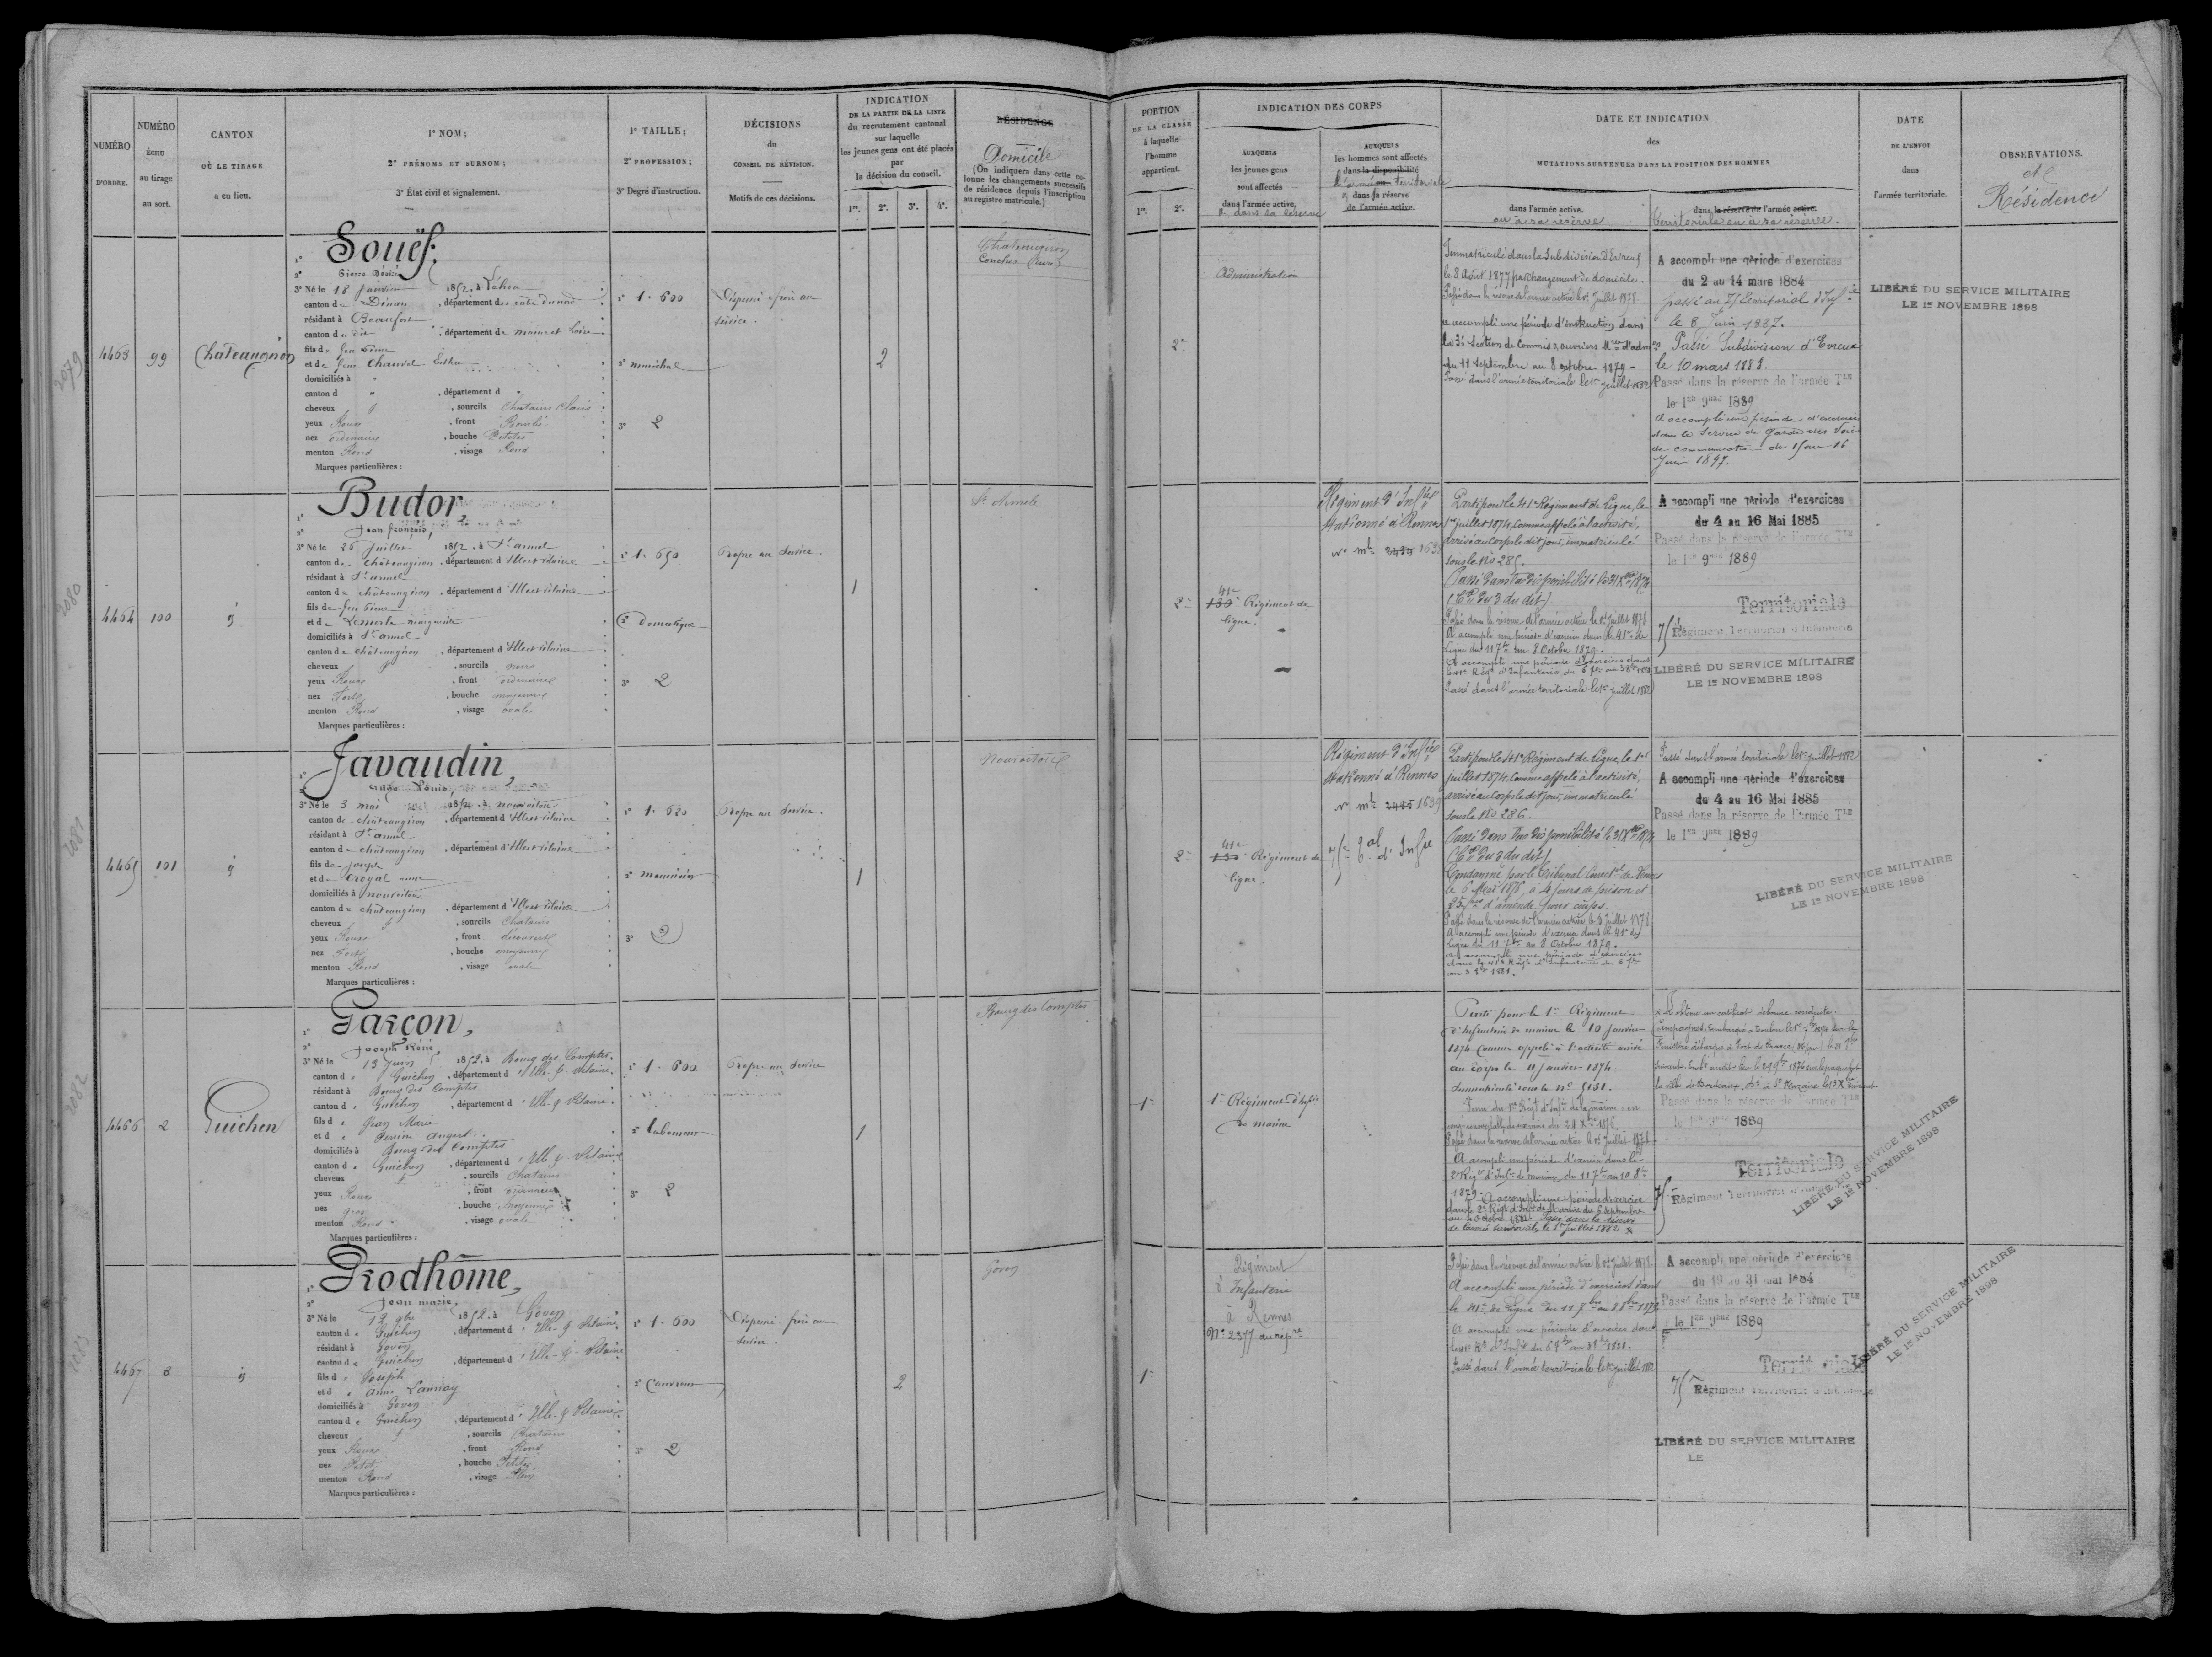 NUMÉRO
D'ORDRE.
NUMÉRO
ÉCHU
au tirage
au sort.
CANTON
OÙ LE TIRAGE
a eu lieu.
1º NOM;
2º PRÉNOMS ET SURNOM;
3º État civil et signalement.
1º TAILLE;
2º PROFESSION;
3º Degré d'instruction.
DÉCISIONS
du
CONSEIL DE RÉVISION.
Motifs de ces décisions.
INDICATION
DE LA PARTIE DE LA LISTE
du recrutement cantonal
sur laquelle
les jeunes gens ont été placés
par
la décision du conseil.
1re. 2e. 3e. 4e.
RÉSIDENCE
Domicile
(On indiquera dans cette co-
lonne les changements successifs
de résidence depuis l'inscription
au registre matricule.)
PORTION
DE LA CLASSE
à laquelle
l'homme
appartient.
1re. 2e.
INDICATION DES CORPS
AUXQUELS
les jeunes gens
sont affectés
dans l'armée active,
ou dans sa réserve
AUXQUELS
les hommes sont affectés
dans la disponibilité
ou
l'armée Territoriale
dans sa réserve
de l'armée active.
DATE ET INDICATION
des
MUTATIONS SURVENUES DANS LA POSITION DES HOMMES
dans l'armée active.
ou à sa réserve
dans la réserve de l'armée active.
Territoriale ou à sa réserve.
DATE
DE L'ENVOI
dans
l'armée territoriale.
OBSERVATIONS.
et
Résidence
2079
4463
99
Chateaugiron
1º Souëf.
2º Pierre Désiré
3º Né le 18 Janvier 1852, à Léhon
canton de Dinan, département des côtes du nord
résidant à Beaufort
canton du dit, département de maine et Loire
fils de feu
et de feue Chauvel Esther
domiciliés à "
canton d " , département d "
cheveux , sourcils Chatains Clairs
yeux Roux , front Bombé
nez ordinaire , bouche Petite
menton Rond , visage Rond
Marques particulières :
1º 1.600
2º maréchal
3º 2
Dispensé frère au
service.
2
Chateaugiron
Conches (Eure)
2e
Administration
Immatriculé dans la Subdivision d'Evreux
le 8 Août 1877 par changement de domicile.
Passé dans la réserve de l'armée active le 1er Juillet 1878.
a accompli une période d'instruction dans
la 3e Section de Commis & ouvriers Mres d'admon
du 11 Septembre au 8 octobre 1879 -
Passé dans l'armée territoriale le 1er juillet 1882
A accompli une période d'exercices
du 2 au 14 mars 1884
passé au 75 territorial d'Infie
le 8 Juin 1887.
Passé Subdivision d'Evreux
le 10 mars 1888.
Passé dans la réserve de l'armée Tle
le 1er 9bre 1889
A accompli une période d'exercices
dans le Service de Garde des Voies
de communication du 15 au 16
Juin 1897.
LIBÉRÉ DU SERVICE MILITAIRE
LE 1er NOVEMBRE 1898
2080
4464
100
1º Budor
2º Jean françois,
3º Né le 25 Juillet 1852, à St armel
canton de châteaugiron, département d'Ille et vilaine
résidant à St armel
canton de châteaugiron, département d'Ille et vilaine
fils de feu
et de Lemerle marguerite
domiciliés à St armel
canton de châteaugiron, département d'Ille et vilaine
cheveux , sourcils noirs
yeux Roux , front ordinaire
nez Fort , bouche moyenne
menton Rond , visage ovale
Marques particulières :
1º 1.650
2º Domestique
3º 2
Propre au Service.
1
St Armel
2e
41e
Régiment de
ligne.
Régiment d'Infie
stationné à Rennes
no mle
Parti pour le 41e Régiment de Ligne, le
1er juillet 1874, Comme appelé à l'activité,
arrivé au Corps le dit jour, immatriculé
sous le No 285.
Passé dans la disponibilité le 31 Xbre 1874
Passé dans la réserve de l'armée active le 1er Juillet 1878
A accompli une période d'exercices dans le 41e de
Ligne du 11 7bre au 8 Octobre 1879.
A accompli une période d'exercices dans
Passé dans l'armée territoriale le 1er juillet 1882
A accompli une période d'exercices
du 4 au 16 Mai 1885
Passé dans la réserve de l'armée Tle
le 1er 9bre 1889
Territoriale
75 Régiment Territorial d'Infanterie
LIBÉRÉ DU SERVICE MILITAIRE
LE 1er NOVEMBRE 1898
2081
4465
101
1º Javaudin,
2º Louis,
3º Né le 3 mai 1852, à nouvoitou
canton de châteaugiron, département d'Ille et vilaine
résidant à St armel
canton de châteaugiron, département d'Ille et vilaine
fils de joseph
et de Croyal anne
domiciliés à nouvoitou
canton de châteaugiron, département d'Ille et vilaine
cheveux , sourcils Chatains
yeux Roux , front découvert
nez Fort , bouche moyenne
menton Rond , visage ovale
Marques particulières :
1º 1.620
2º menuisier
3º 2
Propre au Service.
1
Nouvoitou
2e
41e
Régiment de
ligne.
Régiment d'Infie
stationné à Rennes
no mle 1639
75e tal d'Infie
Parti pour le 41e Régiment de Ligne, le 1er
juillet 1874, Comme appelé à l'activité,
arrivé au Corps le dit jour, immatriculé
sous le No 286.
Passé dans la disponibilité le 31 Xbre 1874
Condamné par le Tribunal Correctel de Rennes
le 6 1876, à 4 jours de prison et
d'amende pour coups.
Passé dans la réserve de l'armée active le 1er Juillet 1878.
A accompli une période d'exercices dans le 41e de
Ligne du 11 7bre au 8 Octobre 1879.
a accompli une période d'exercices
dans le 41e Régt d'Infanterie du 6 7bre
au 3 8bre 1881.
Passé dans l'armée territoriale le 1er juillet 1882
A accompli une période d'exercices
du 4 au 16 Mai 1885
Passé dans la réserve de l'armée Tle
le 1er 9bre 1889
LIBÉRÉ DU SERVICE MILITAIRE
LE 1er NOVEMBRE 1898
2082
4466
2
Guichen
1º Garçon,
2º Joseph René
3º Né le 13 Juin 1852, à Bourg des Comptes.
canton de Guichen, département d'Ille & Vilaine.
résidant à Bourg des Comptes
canton de Guichen, département d'Ille & Vilaine.
fils de Jean Marie
et de Perrine Angert
domiciliés à Bourg des Comptes
canton de Guichen, département d'Ille & Vilaine
cheveux , sourcils Chatains
yeux Roux , front ordinaire
nez gros , bouche moyenne
menton Rond , visage ovale
Marques particulières :
1º 1.600
2º laboureur
3º 2
Propre au Service
1
Bourg des Comptes
1re
1er Régiment d'Infie
de marine
Parti pour le 1er Régiment
d'Infanterie de marine le 10 Janvier
1874 Comme appelé à l'activité arrivé
au corps le 11 Janvier 1874.
Immatriculé sous le No 5151.
Passé dans la réserve de l'armée active le 1er Juillet 1878.
A accompli une période d'exercices dans le
2e Régt d'Infie de marine du 11 7bre au 10 8bre
1879. A accompli une période d'exercice
dans le 2e Régt d'Infie de Marine du 6 septembre
au Octobre 1881. Passé dans la réserve
de l'armée territoriale le 1er juillet 1882.
obtenu un certificat de bonne conduite.
Passé dans la réserve de l'armée Tle
1889
Territoriale
75 Régiment Territorial d'Infanterie
LIBÉRÉ DU SERVICE MILITAIRE
LE 1er NOVEMBRE 1898
2083
4467
3
1º Prodhôme,
2º Jean marie,
3º Né le 12 9bre 1852, à Goven
canton de Guichen, département d'Ille & Vilaine
résidant à Goven
canton de Guichen, département d'Ille & Vilaine
fils de Joseph
et de Anne Lannay
domiciliés à Goven
canton de Guichen, département d'Ille & Vilaine
cheveux , sourcils Chatains
yeux Roux , front Rond
nez Petit , bouche Petite
menton Rond , visage Plein
Marques particulières :
1º 1.600
2º Couvreur
3º 2
Dispensé frère au
service.
2
Goven
1re
Régiment
d'Infanterie
à Rennes
No 2377 au répre
Passé dans la réserve de l'armée active le 1er Juillet 1878.
A accompli une période d'exercices dans
le 41e de ligne du 11 7bre au 8 8bre 1879
A accompli une période d'exercices dans
Passé dans l'armée territoriale le 1er juillet 1882
A accompli une période d'exercices
du 19 au 31 mai 1884
Passé dans la réserve de l'armée Tle
le 1er 9bre 1889
Territoriale
75 Régiment Territorial d'Infanterie
LIBÉRÉ DU SERVICE MILITAIRE
LE 1er NOVEMBRE 1898
LIBÉRÉ DU SERVICE MILITAIRE
LE